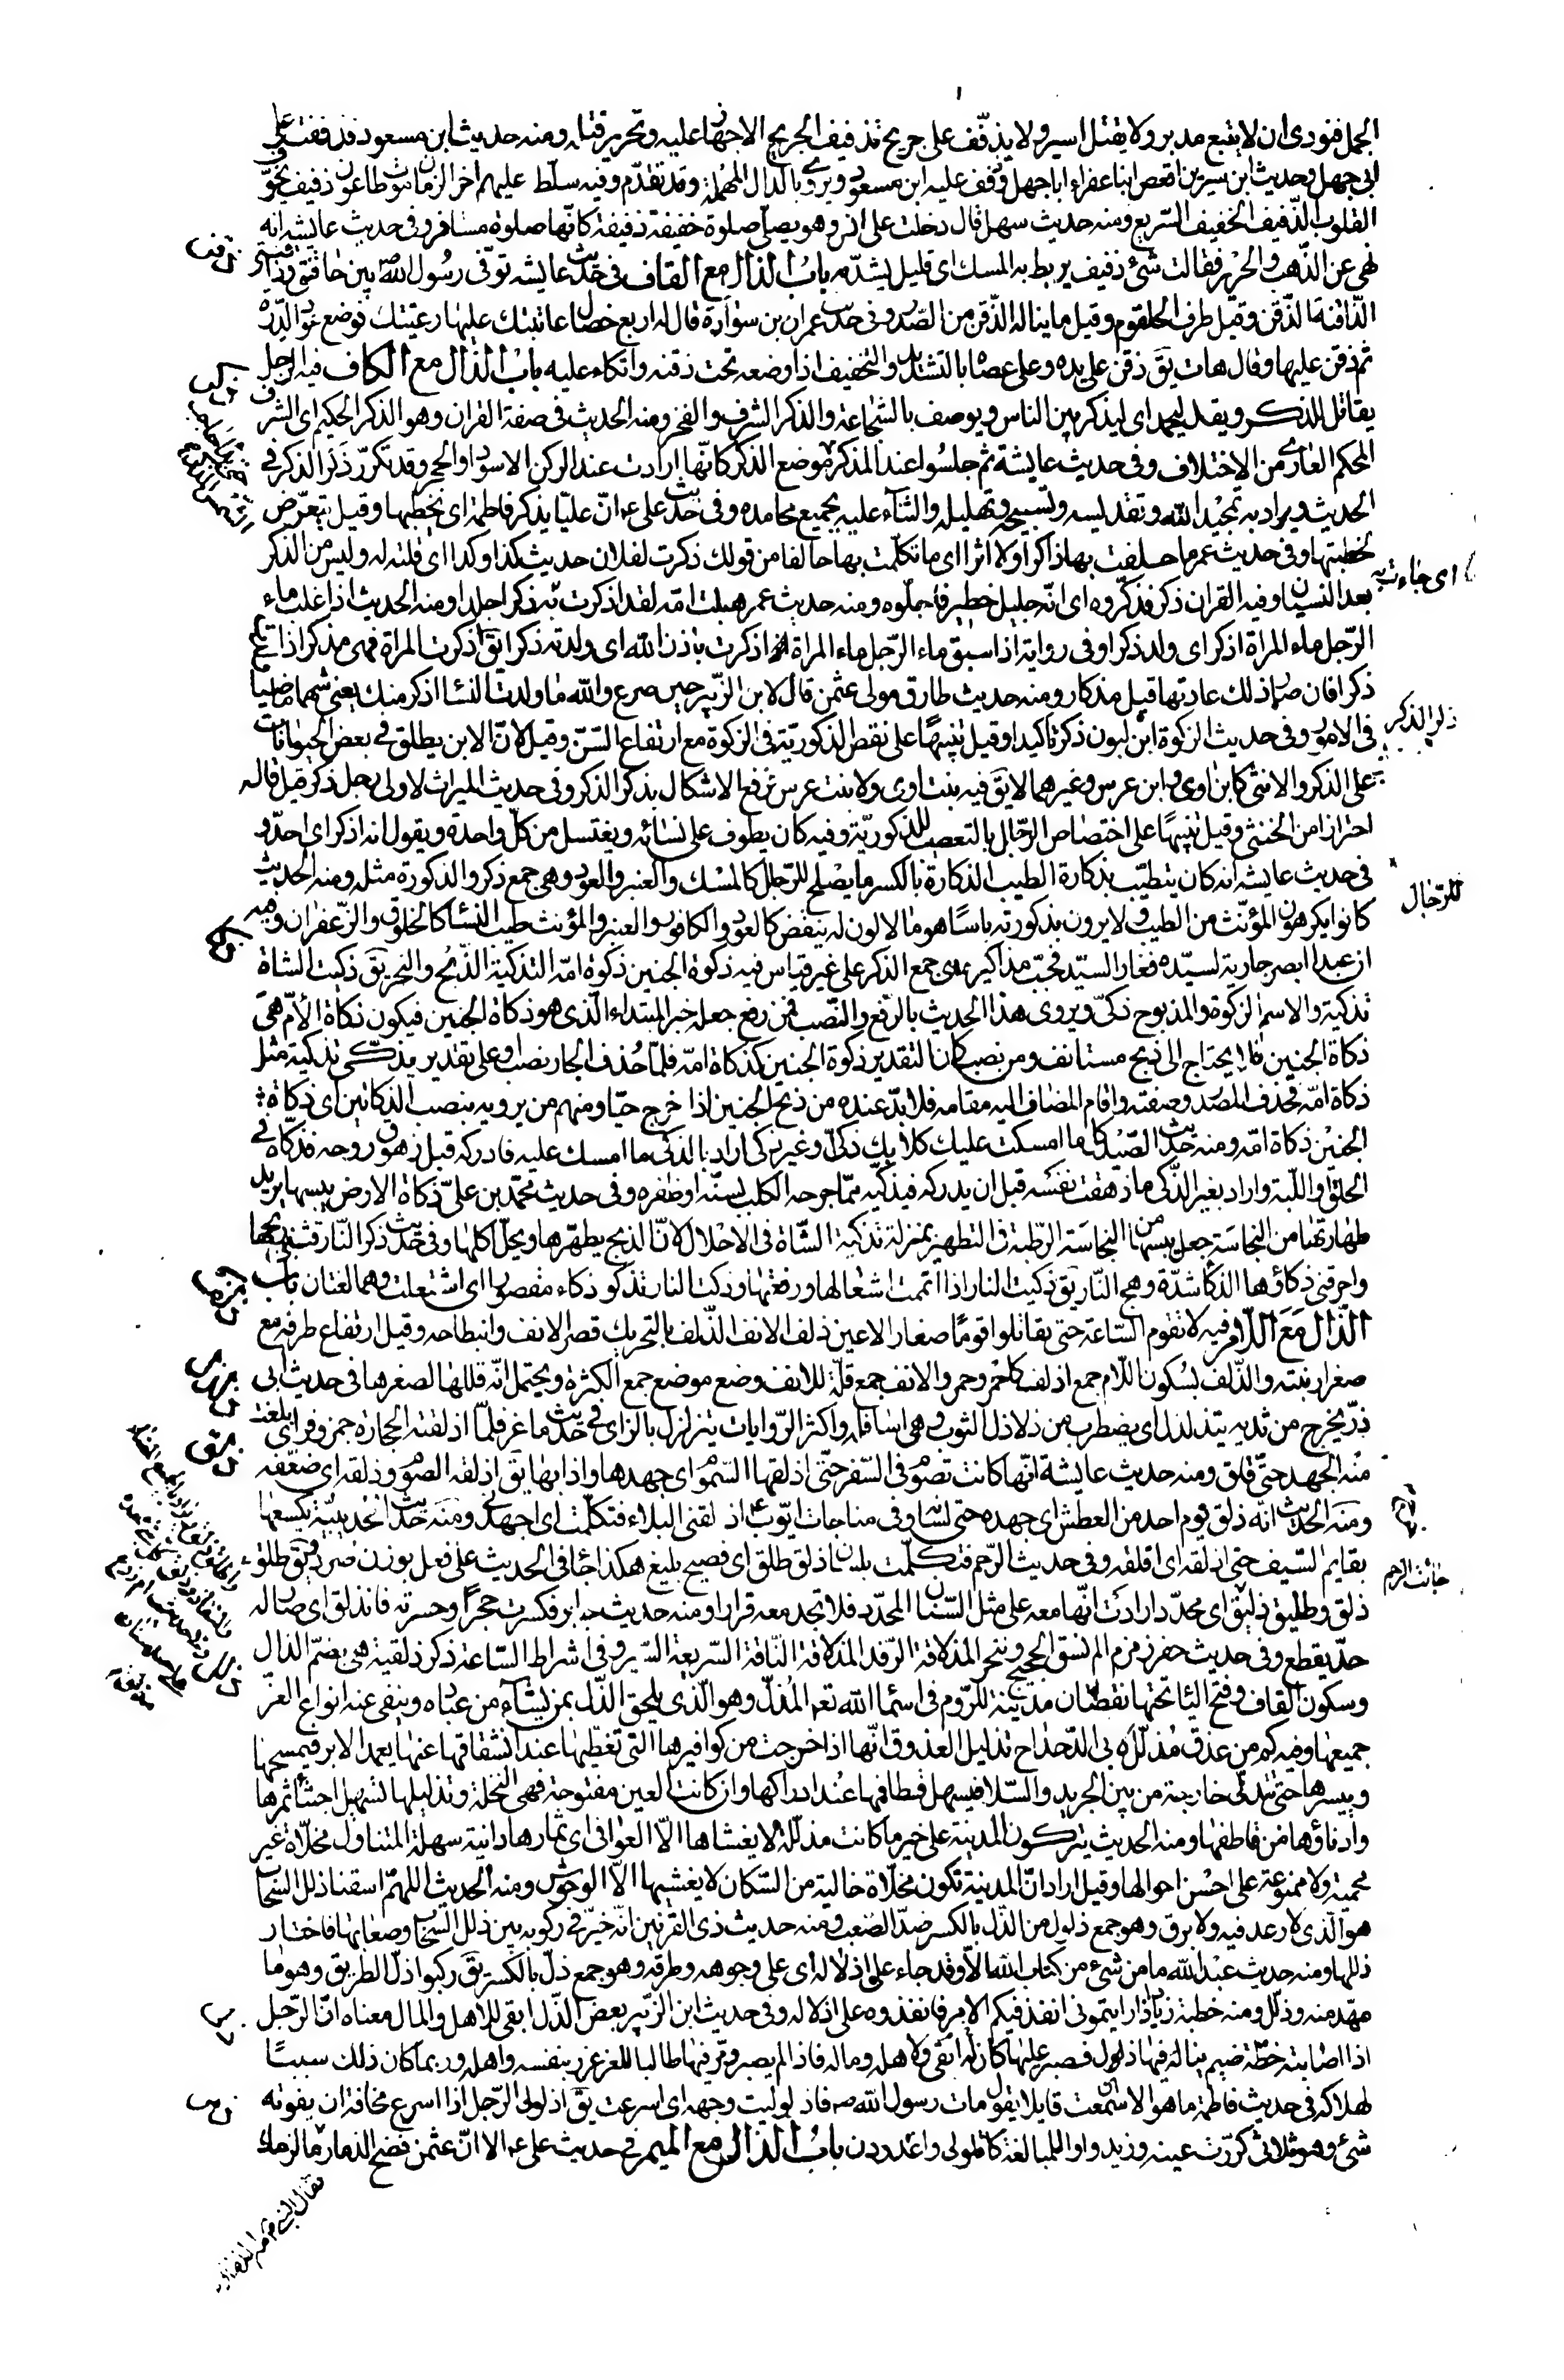 الجمل فنودى ان لا يتبع مدبر ولا يقتل اسير ولا يذفف على جريح تذفيف الجريح الاجهاز عليه وتحرير قتله ومنه حديث ابن مسعود فذففت على
ابى جهل وحديث ابن سيرين اقعص ابنا عفراء اباجهل وذفف عليه ابن مسعود ويروى بالدال المهملة وقد تقدم وفيه سلط عليهم اخر الزمان موت طاعون ذفيف يحوف
القلوب الذفيف الخفيف السريع ومنه حديث سهل قال دخلت على انس وهو يصلى صلوة خفيفة ذفيفة كانها صلوة مسافر وفى حديث عايشه انه
نهى عن الذهب والحرير فقالت شئ ذفيف يربط به المسك اى قليل يشد به باب الذال مع القاف فى حديث عايشه توفى رسول الله بين حاقنتى وذاقنتى
الذاقنة الذقن وقيل طرف الحلقوم وقيل ما يناله الذقن من الصدر وفى حديث عمران بن سوادة قال له اربع خصال عاتبتك عليها رعيتك فوضع عود الدرة
ثم ذقن عليها وقال هات يق ذقن على يده وعلى عصاه بالتشديد والتخفيف اذا وضعه تحت ذقنه واتكاء عليه باب الذال مع الكاف فيه الرجل
يقاتل للذكر ويقـ ليحمد اى ليذكر بين الناس ويوصف بالشجاعة والذكر الشرف والفخر ومنه الحديث فى صفة القران وهو الذكر الحكيم اى الشرف
المحكم العارى من الاختلاف وفى حديث عايشة ثم جلسوا عند المذكر موضع الذكر كانها ارادت عند الركن الاسود او الحجر وقد تكرر ذكر الذكر فى
الحديث ويراد به تمجيد الله وتقديسه وتسبيحه وتهليله والثناء عليه بجميع محامده وفى حديث على ع ان عليا يذكر فاطمة اى يخطبها وقيل يتعرض
لخطبتها وفى حديث عمر ما حلفت بها ذاكرا ولا اثرا اى ما تكلمت بها حالفا من قولك ذكرت لفلان حديث كذا وكذا اى قلته له وليس من الذكر
بعد النسيان وفيه القران ذكر فذكروه اى انه جليل خطير فاجلوه ومنه حديث عمر هبلت امه لقد اذكرت به ذكرا جلدا ومنه الحديث اذا غلب ماء
الرجل ماء المراة اذكرا اى ولد ذكرا وفى رواية اذا سبق ماء الرجل ماء المراة اذكرت باذن الله اى ولدته ذكرا يق اذكرت المراة فهى مذكر اذا ولدت
ذكرا فان صار ذلك عادتها قيل مذكار ومنه حديث طارق مولى عثمن قال لابن الزبير حين صرع والله ما ولدت النساء اذكر منك يعنى شهما ماضيا
فى الامور وفى حديث الزكوة ابن لبون ذكر تاكيدا وقيل تنبيها على نقص الذكورية فى الزكوة مع ارتفاع السن وقيل لان الابن يطلق فى بعض الحيوانات
على الذكر والانثى كابن اوى وابن عرس وغيرهما لا يق فيه بنت اوى ولا بنت عرس فرفع الاشكال بذكر الذكر وفى حديث الميراث لاولى رجل ذكر قيل قاله
احترازا من الخنثى وقيل تنبيها على اختصاص الرجال بالتعصيب للذكورية وفيه كان يطوف على نسائه ويغتسل من كل واحدة ويقول انه اذكر اى احد و
فى حديث عايشه انه كان يتطيب بذكارة الطيب الذكارة بالكسر ما يصلح للرجال كالمسك والعنبر والعود وهى جمع ذكر والذكورة مثله ومنه الحديث
كانوا يكرهون المؤنث من الطيب ولا يرون بذكورته باسا هو ما لا لون له ينفض كالعود والكافور والعنبر والمؤنث طيب النساء كالخلوق والزعفران وفيه
ان عبدا ابصر جارية لسيده فغار السيد فجب مذاكيره هى جمع الذكر على غير قياس فيه ذكوة الجنين ذكوة امه التذكية الذبح والنحر يق ذكيت الشاة
تذكية والاسم الزكوة والمذبوح ذكى ويروى هذا الحديث بالرفع والنصب فمن رفع جعله خبر المبتداء الذى هو ذكاة الجنين فيكون ذكاة الام هى
ذكاة الجنين فلا يحتاج الى ذبح مستانف ومن نصب كان التقدير ذكوة الجنين كذكاة امه فلما حذف الجار نصب او على تقدير يذكى تذكية مثل
ذكاة امه فحذف المصدر وصفته واقام المضاف اليه مقامه فلا بد عنده من ذبح الجنين اذا خرج حيا ومنهم من يرويه بنصب الذكاتين اى ذكاة
الجنين ذكاة امه ومنه حديث الصيد كل ما امسكت عليك كلابك ذكى وغير ذكى اراد بالذكى ما امسك عليه فادركه قبل زهوق روحه فذكاه فى
الحلق او اللبة واراد بغير الذكى ما زهقت نفسه قبل ان يدركه فيذكيه مما جرحه الكلب بسنه او ظفره وفى حديث محمد بن على ذكاة الارض يبسها يريد
طهارتها من النجاسة جعل يبسها من النجاسة الرطبة فى التطهير بمنزلة تذكية الشاة فى الاحلال لان الذبح يطهرها ويحل اكلها وفى حديث ذكر النار قشبنى ريحها
واحرقنى ذكاؤها الذكا شدة وهج النار يق ذكيت النار اذا اتممت اشعالها ورفعتها وذكت النار تذكو ذكاء مقصور اى اشتعلت وهما لغتان باب
الذال مع اللام فيه لا تقوم الساعة حتى يقاتلوا قوما صغار الاعين ذلف الانف الذلف بالتحريك قصر الانف وانبطاحه وقيل ارتفاع طرفه مع
صغر ارنبته والذلف بسكون اللام جمع اذلف كاحمر وحمر والانف جمع قلة للانف وضع موضع جمع الكثرة ويحتمل انه قللها لصغرها فى حديث ابى
ذر يخرج من ثديه يتذلذل اى يضطرب من ذلاذل الثوب وهى اسافله واكثر الروايات يتزلزل بالزاى فى حديث ماعز فلما اذلقته الحجارة جمز وفر اى بلغت
منه الجهد حتى قلق ومنه حديث عايشة انها كانت تصوم فى السفر حتى اذلقها السموم اى جهدها واذابها يق اذلقه الصوم وذلقه اى ضعفه
ومنه الحديث انه ذلق يوم احد من العطش اى جهده حتى لسانه وفى مناجات ايوب ع اذلقنى البلاء فتكلمت اى اجهدنى ومنه حديث الحديبية يكسعها
بقايم السيف حتى اذلقه اى اقلقه وفى حديث الرحم فتكلمت بلسان ذلق طلق اى فصيح بليغ هكذا جاء فى الحديث على فعل بوزن صرد ويق طلق
ذلق وطليق ذليق اى محدد ارادت انها معه على مثل السنان المحدد فلا تجد معه قرارا ومنه حديث جابر فكسرت حجرا وحسرته فانذلق اى صار له
حد يقطع وفى حديث حفر زمزم الم نسق الحجيج وننحر المذلاقة الرفد المذلاقة الناقة السريعة السير وفى اشراط الساعة ذكر ذلقية هى بضم الذال
وسكون القاف وفتح اليا تحتها نقطتان مدينة للروم فى اسماء الله تعم المذل وهو الذى يلحق الذل بمن يشاء من عباده وينفى عنه انواع العز
جميعها وفيه كم من عذق مذلل لابى الدحداح تذليل العذوق انها اذا خرجت من كوافيرها التى تغطيها عند انشقاقها عنها يعمد الابر فيمسحها
وييسرها حتى تتدلى خارجة من بين الجريد والسلا فيسهل قطافها عند ادراكها وان كانت العين مفتوحة فهى النخلة وتذليلها تسهيل اجتناء ثمرها
وادناؤها من قاطفها ومنه الحديث يتركون المدينة على خير ما كانت مذللة لا يغشاها الا العوافى اى ثمارها دانية سهلة المتناول مخلاة غير
محمية ولا ممنوعة على احسن احوالها وقيل اراد ان المدينة تكون مخلاة خالية من السكان لا يغشيها الا الوحوش ومنه الحديث اللهم اسقنا ذلل السحاب
هو الذى لا رعد فيه ولا برق وهو جمع ذلول من الذل بالكسر ضد الصعب ومنه حديث ذى القرنين انه خير فى ركوبه بين ذلل السحاب وصعابها فاختار
ذللها ومنه حديث عبد الله ما من شئ من كتاب الله الا وقد جاء على اذلاله اى على وجوهه وطرقه وهو جمع ذل بالكسر يق ركبوا ذل الطريق وهو ما
مهد منه وذلل ومنه خطبة زياد اذا رايتمونى انفذ فيكم الامر فانفذوه على اذلاله وفى حديث ابن الزبير بعض الذل ابقى للاهل والمال معناه ان الرجل
اذا اصابته خطة ضيم يناله فيها ذل فصبر عليها كان له ابقى ولاهله وماله فاذا لم يصبر ومر فيها طالبا للعز غرر بنفسه واهله وربما كان ذلك سببا
لهلاكه فى حديث فاطمة ما هو الا ان سمعت قايلا يقول مات رسول الله ص فاذلوليت وجهه اى اسرعت يق اذلولى الرجل اذا اسرع مخافة ان يفوته
شئ وهو ثلاثى كررت عينه وزيد واوا للمبالغة كاقلولى واغدودن باب الذال مع الميم فى حديث على ع الا ان عثمن فضح الذمار ما لزمك
اى جاءت به
ذكر الذكر
للرجال
جائت الرحم